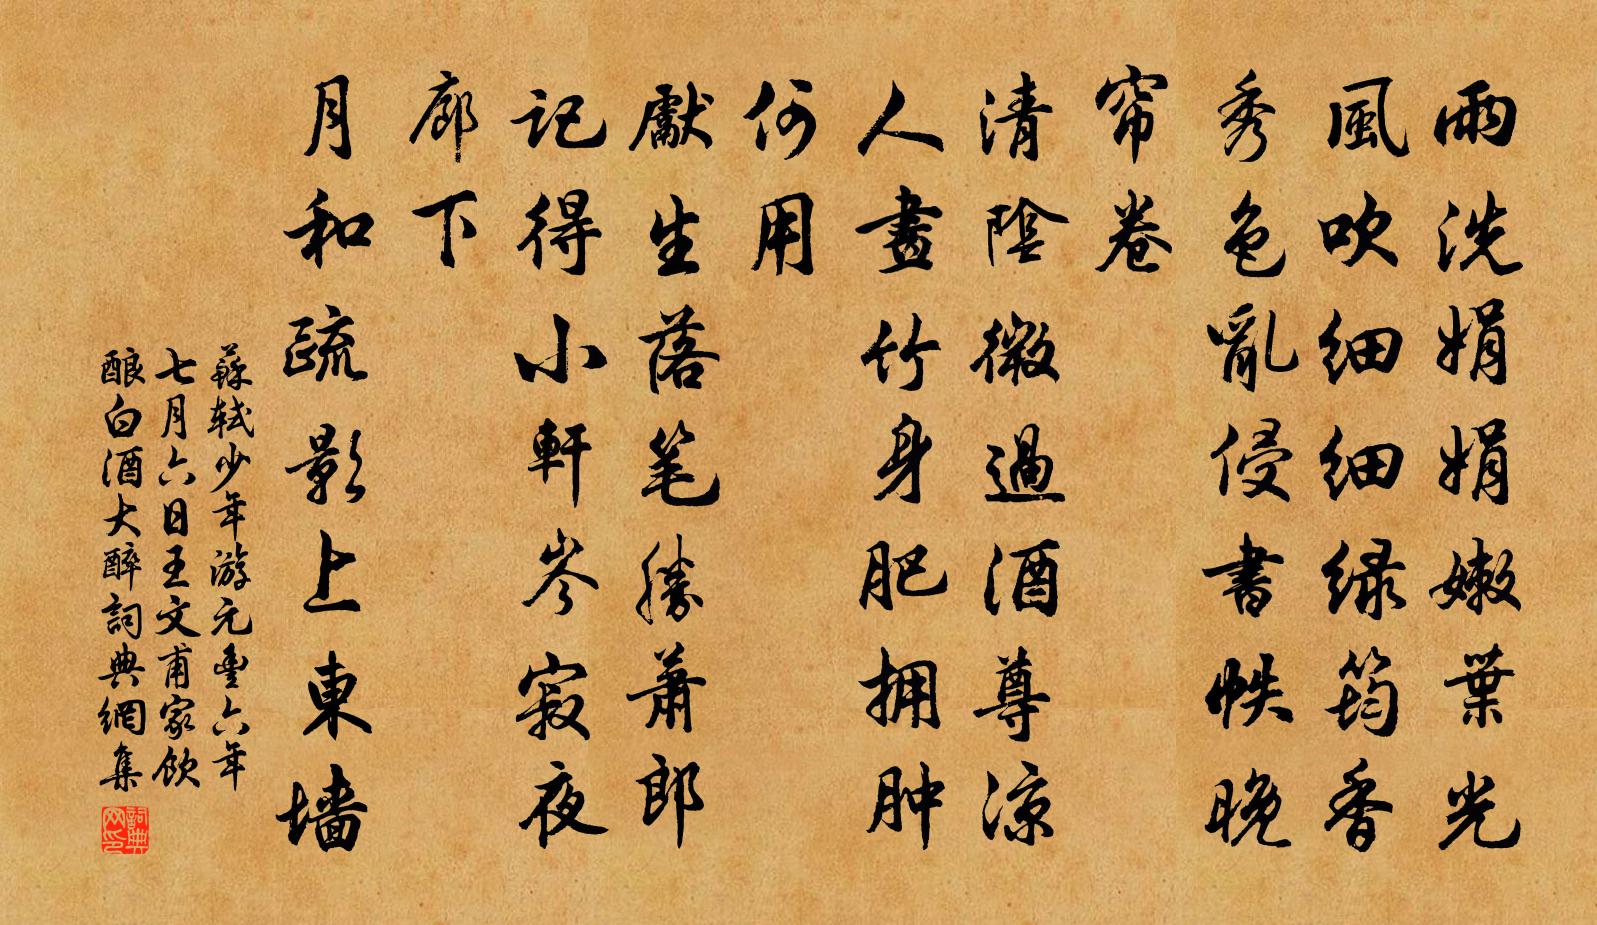 雨洗娟娟嫩葉光
風吹細細緑筠香
秀色亂侵書帙晚
帘卷
清陰微過酒尊涼
人畫竹身肥拥肿
何用
獻生落笔勝蕭郎
記得小軒岑寂夜
廊下
月和疏影上東墙
蘇軾少年游元豐六年
七月六日王文甫家飲
酿白酒大醉詞典網集
詞典
网印